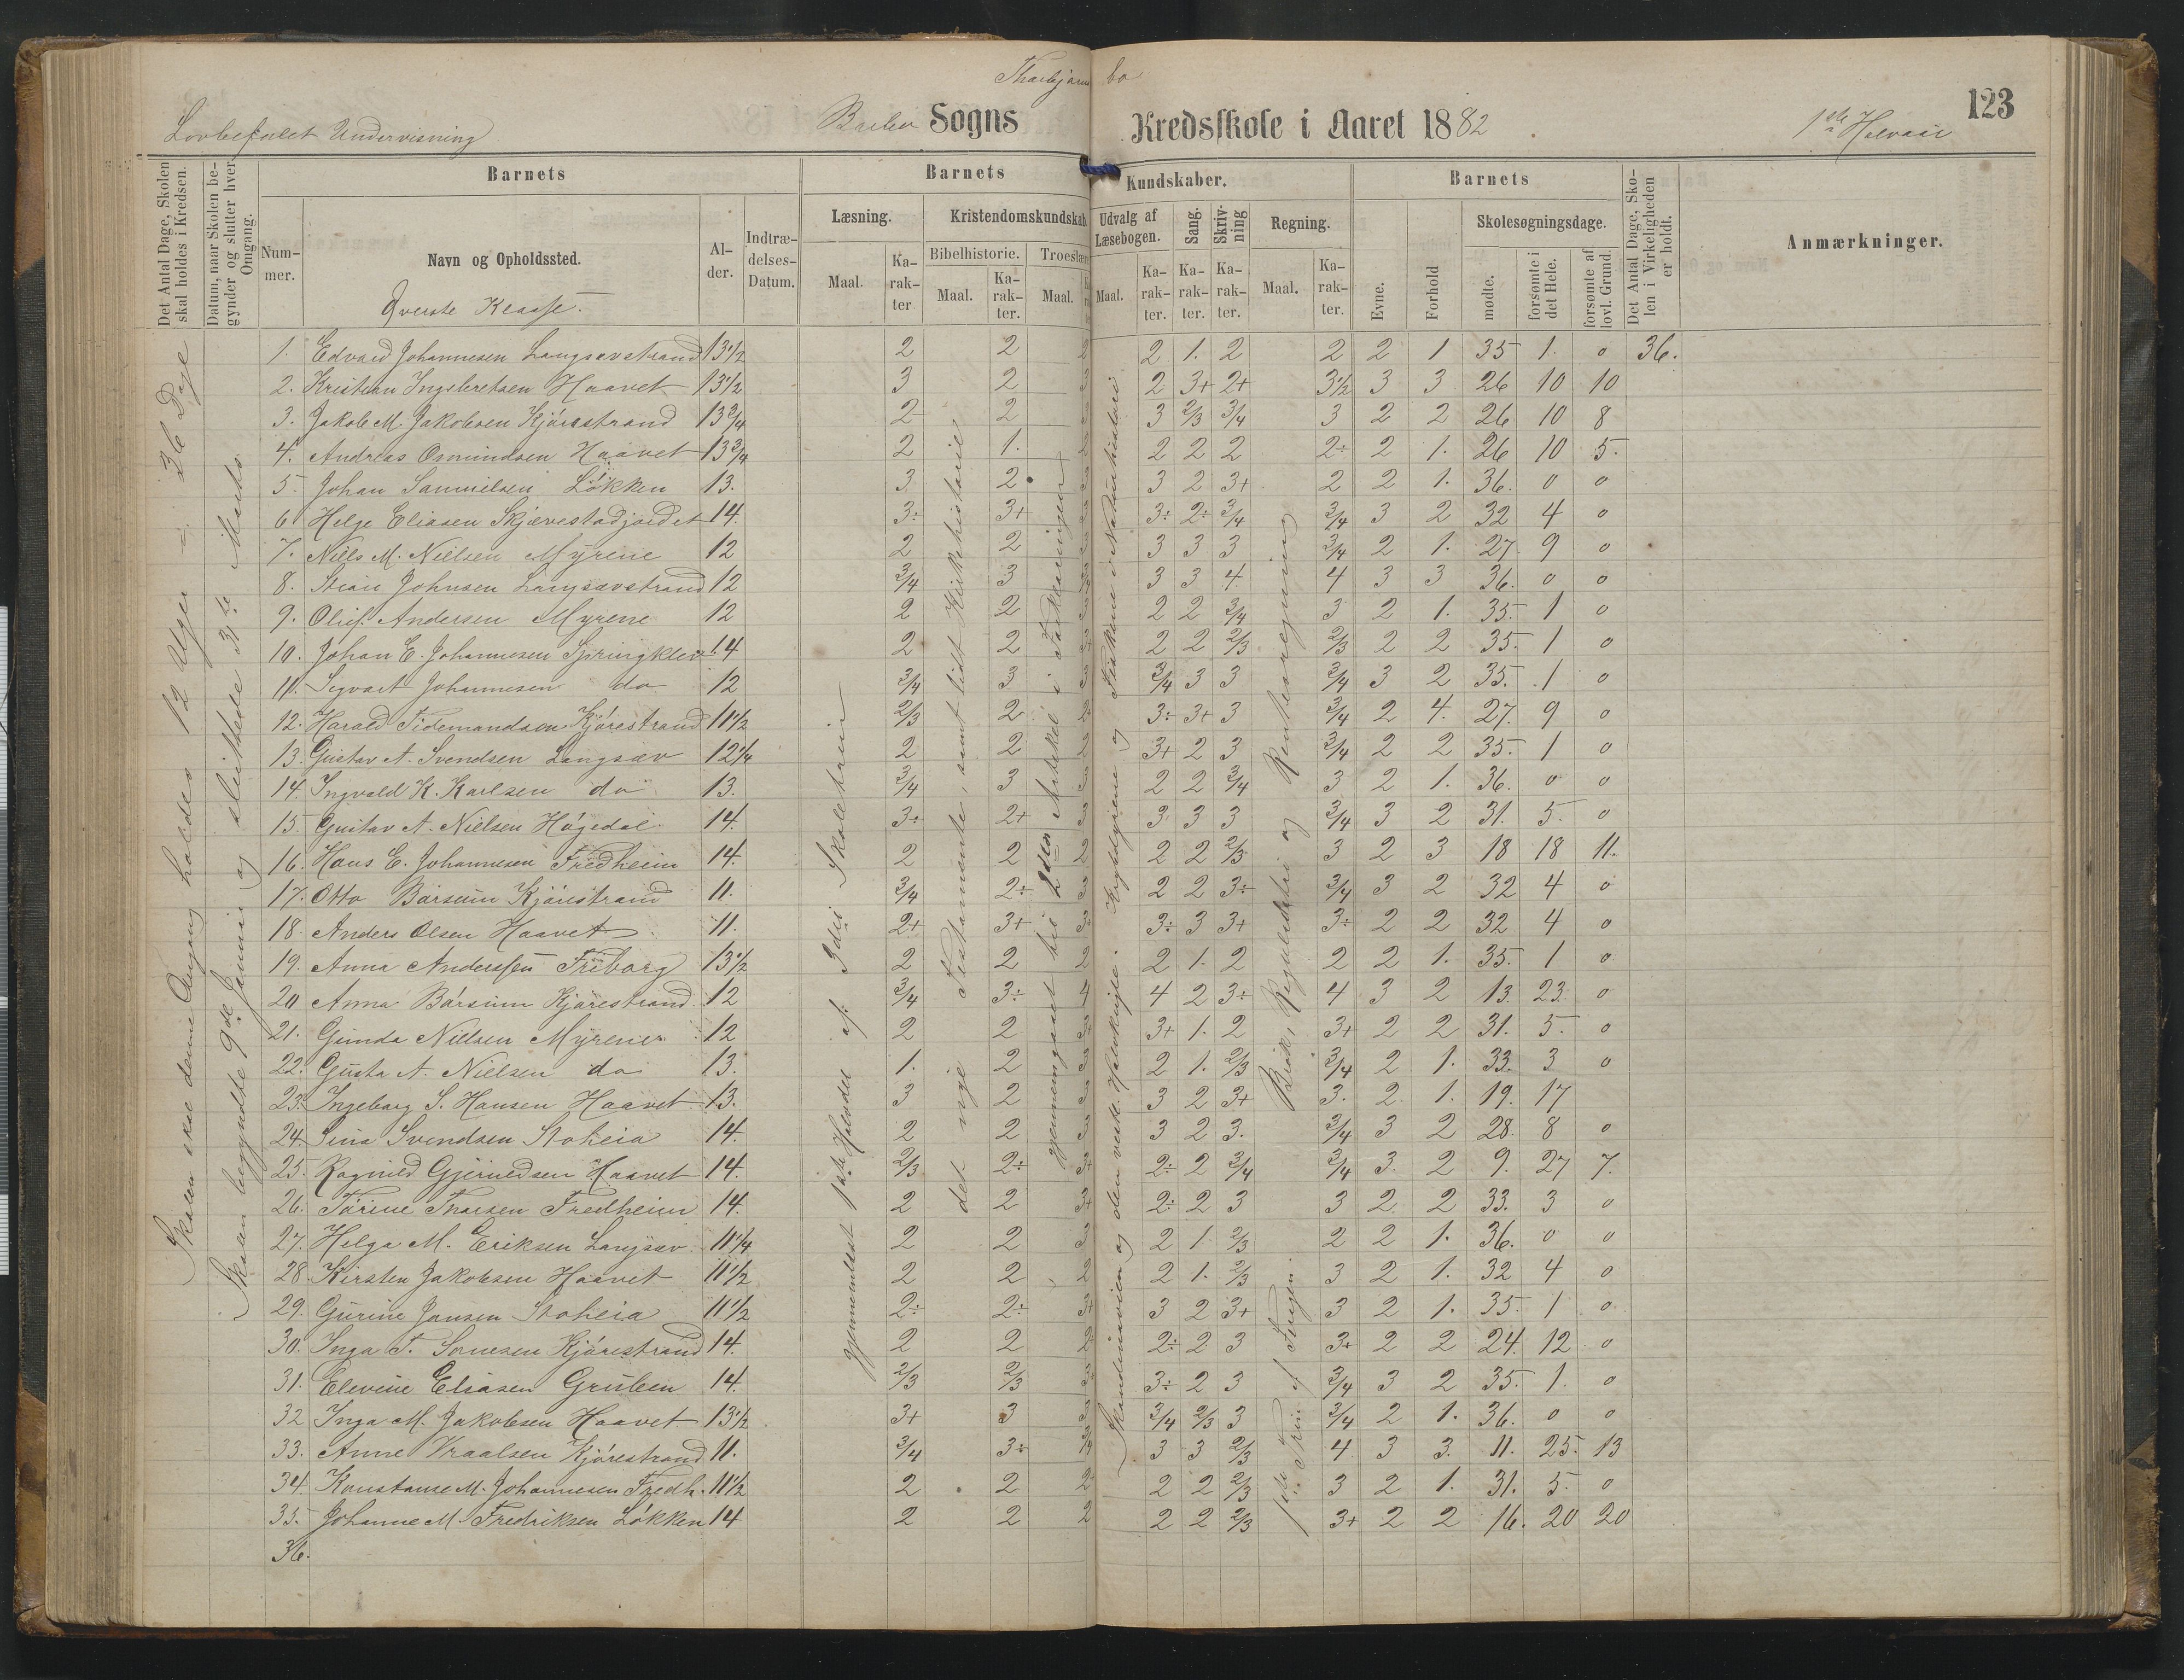 Thorbjørns bo
Lovbefalet Undervisning
Barbo Sogns Kredsskole i Aaret 1882.
1ste Halvaar
123
Det Antal Dage, Skolen skal holdes i Kredsen.
Datum, naar Skolen begynder og slutter hver Omgang.
Barnets
Nummer.
Navn og Opholdssted.
Øverste Klasse.
Alder.
Indtrædelses-Datum.
Barnets Kundskaber.
Læsning.
Maal.
Karakter
Kristendomskundskab.
Bibelhistorie.
Maal.
Karakter.
Troeslære
Maal.
Udvalg af Læsebogen.
Maal.
Karakter.
Sang.
Karakter.
Skrivning
Karakter.
Regning.
Maal.
Karakter.
Barnets
Evne.
Forhold
Skolesøgningsdage.
mødte.
forsømte i det Hele.
forsømte af lovl. Grund.
Det Antal Dage, Skolen i Virkeligheden er holdt.
Anmærkninger.
Skolen skal denne Omgang holdes 12 Uger = 36 Dage
Skolen begyndte 9de Januar og sluttede 31te Marts.
gjennemlæst 1ste Halvdel af 3die Skoletrin
det nye Testamente, samt lidt Kirkehistorie
gjennemgaaet til 2den Artikel i Forklaringen
Skandinavien og den vestl. Halvkugle. Krybdyrene og Fiskene i Naturhistorie
Brøk, Reguladetri og Rentesregning
1ste Trin af Sangen.
1. Edvard Johannesen Langsævstrand 13 1/2 2 2 2 2 1. 2 2 2 1 35 1. 0 36.
2. Kristian Ingebretsen Haavet 13 1/2 3 2 3 2 3+ 2+ 3 1/2 3 3 26 10 10
3. Jakob M. Jakobsen Kjørrestrand 13 3/4 2 2 3 3 2/3 3/4 3 2 2 26 10 8
4. Andreas Osmundsen Haavet 13 3/4 2 1. 2 2 2 2 2÷ 2 1. 26 10 5.
5. Johan Samuelsen Løkken 13. 3 2 3 3 2 3+ 2 2 1. 36. 0 0
6. Helge Eliasen Skjævestadjordet 14. 3÷ 3+ 3 3÷ 2÷ 3/4 3/4 3 2 32 4 0
7. Niels M. Nielsen Myrene 12 2 2 3 3 3 3 3/4 2 1. 27. 9 0
8. Stian Johnsen Langsævstrand 12 3/4 3 3 3 4. 4 3 3 36. 0 0
9. Oluf Andersen Myrene 12 2 2 2 2 3/4 3 2 1. 35. 1 0
10. Johan E. Johannesen Springklev 14 2 2 2 2 2/3 2/3 2 2 35. 1 0
11. Sigvart Johannesen do 12 3/4 3 3 3/4 3 3 3/4 3 2 35. 1 0
12. Harald Tidemandsen Kjørrestrand 11 1/2 2/3 2 2 3÷ 3+ 3 3/4 2 4. 27. 9 0
13. Gustav A. Svendsen Langsæv 12 1/4 2 2 2 3+ 2 3 3/4 2 2 35. 1 0
14. Ingvald K. Karlsen do 13. 3/4 3 3 2 2 3/4 3 2 1. 36. 0 0
15. Gustav A. Nielsen Høgedal 14. 3÷ 2+ 3 3 3 3 3/4 3 2 31. 5. 0
16. Hans E. Johannesen Fredheim 14. 2 2 2 2 2 2/3 3 2 3 18 18 11.
17. Otto Børsum Kjørrestrand 11. 3/4 2÷ 3 2 2 3÷ 3/4 3 2 32 4 0
18. Anders Olsen Haavet 11. 2+ 3+ 3+ 3÷ 3 3+ 3÷ 2 2 32 4 0
19. Anna Anderssen Friborg 13 1/2 2 2 2 2 1. 2 2 2 1. 35. 1 0
20 Anna Børsum Kjørrestrand 12 3/4 3÷ 4 4 2 3÷ 4 3 2 13. 23. 0
21. Gunda Nielsen Myrene 12 2 2 3+ 3+ 1. 2 3+ 2 2 31. 5. 0
22. Gusta A. Nielsen do 13. 1. 2 3 2 1. 2/3 3/4 2 1. 33. 3 0
23. Ingeborg S. Hansen Haavet 13. 3 2 3 3 2 3+ 3. 2. 1. 19. 17
24. Sina Svendsen Stoheia 14. 2 2 3 3 2 3. 3/4 3 2 28. 8 0
25. Ragnild Gjeruldsen Haavet 14. 2/3 2÷ 3+ 2÷ 2 3/4 3/4 3. 2 9. 27 7.
26. Torine Thorsen Fredheim 14. 2 2 3+ 2÷ 2 3 3 2 2 33. 3 0
27. Helga M. Eriksen Langsæv 11 1/4 2 2 3 2 1 2/3 2 2 1. 36. 0 0
28. Kirsten Jakobsen Haavet 11 1/2 2 2 2 2 1. 2/3 3 2 1. 32 4 0
29. Gurine Jansen Stoheia 11 1/2 2÷ 2÷ 3+ 3 2 3+ 3 2 1. 35. 1 0
30. Inga T. Kjørrestrand 14. 2 2 2 2÷ 2 3 3+ 2 2 24. 12 0
31. Elevine Eliasen Gruben 14. 2/3 2/3 3 3÷ 2 3 3/4 3 2 35. 1. 0
32 Inga M. Jakobsen Haavet 13 1/2 3+ 3 3 3/4 2/3 3 3/4 2 1. 36. 0 0
33. Anne Vraalsen Kjørrestrand 11. 3/4 3÷ 3/4 3 3 2/3 4 3 3. 11. 25. 13
34. Konstanse M. Johannesen Fredh. 11 1/2 2 2 2 2 2 2/3 3 2 1. 31. 5. 0
35. Johanne M. Fredriksen Løkken 14 2 2 2 2 2 2/3 3+ 2 2 16. 20 20
36.